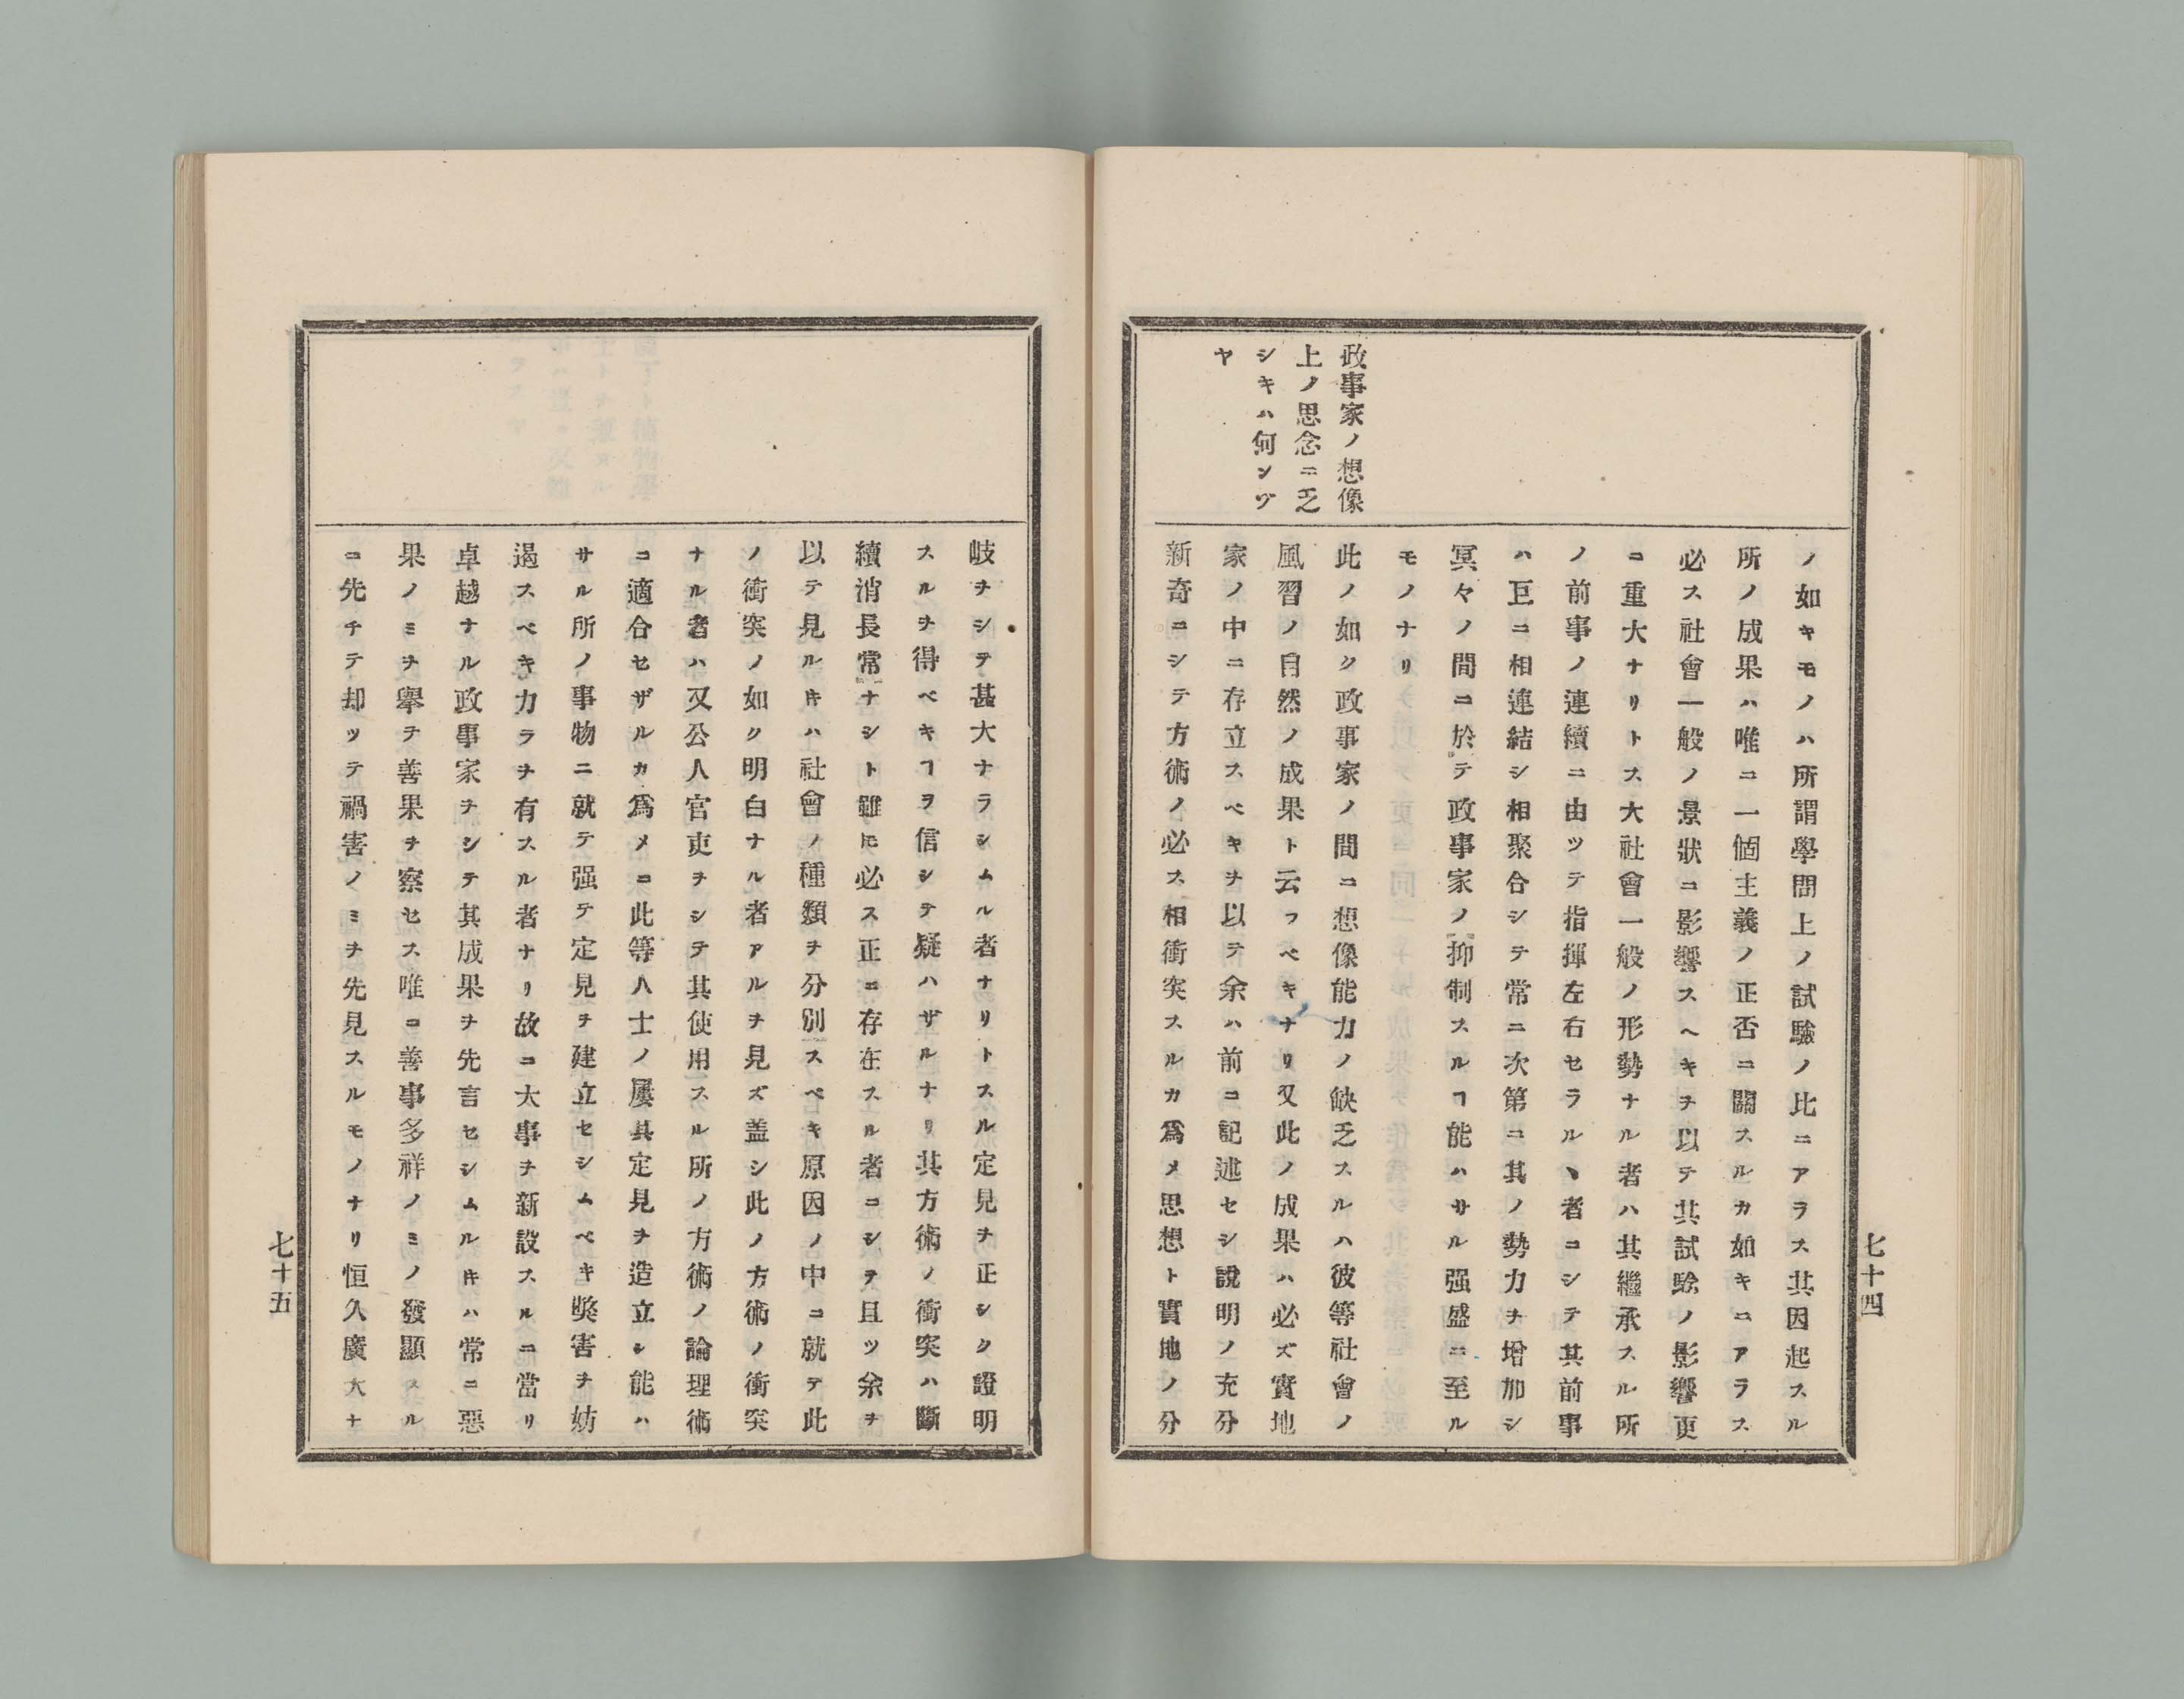 政事家ノ想像
上ノ思念ニ乏
シキハ何ンゾ
ヤ
ノ如キモノハ所謂學問上ノ試驗ノ比ニアラス其因起スル
所ノ成果ハ唯ニ一個主義ノ正否ニ關スルカ如キニアラス
必ス社會一般ノ景狀ニ影響スヘキヲ以テ其試驗ノ影響更
ニ重大ナリトス大社會一般ノ形勢ナル者ハ其繼承スル所
ノ前事ノ連續ニ由ツテ指揮左右セラルヽ者ニシテ其前事
ハ互ニ相連結シ相聚合シテ常ニ次第ニ其ノ勢力ヲ增加シ
冥々ノ間ニ於テ政事家ノ抑制スルヿ能ハサル强盛ニ至ル
モノナリ
此ノ如ク政事家ノ間ニ想像能力ノ缺乏スルハ彼等社會ノ
風習ノ自然ノ成果ト云フベキナリ又此ノ成果ハ必ズ實地
家ノ中ニ存立スベキヲ以テ余ハ前ニ記述セシ說明ノ充分
新奇ニシテ方術ノ必ス相衝突スルカ爲メ思想ト實地ノ分
七十四
岐ヲシテ甚大ナラシムル者ナリトスル定見ヲ正シク證明
スルヲ得ベキヿヲ信シテ疑ハザルナリ其方術ノ衝突ハ斷
續消長常ナシト雖𪜈必ス正ニ存在スル者ニシテ且ツ余ヲ
以テ見ルキハ社會ノ種類ヲ分別スベキ原因ノ中ニ就テ此
ノ衝突ノ如ク明白ナル者アルヲ見ズ盖シ此ノ方術ノ衝突
ナル者ハ又公人官吏ヲシテ其使用スル所ノ方術ノ論理術
ニ適合セザルカ爲メニ此等人士ノ屢其定見ヲ造立シ能ハ
サル所ノ事物ニ就テ强テ定見ヲ建立セシムベキ獘害ヲ妨
遏スベキ力ラヲ有スル者ナリ故ニ大事ヲ新設スルニ當リ
卓越ナル政事家ヲシテ其成果ヲ先言セシムルキハ常ニ惡
果ノミヲ擧テ善果ヲ察セス唯ニ善事多祥ノミノ發顯スル
ニ先チテ却ツテ禍害ノミヲ先見スルモノナリ恒久廣大ナ
七十五